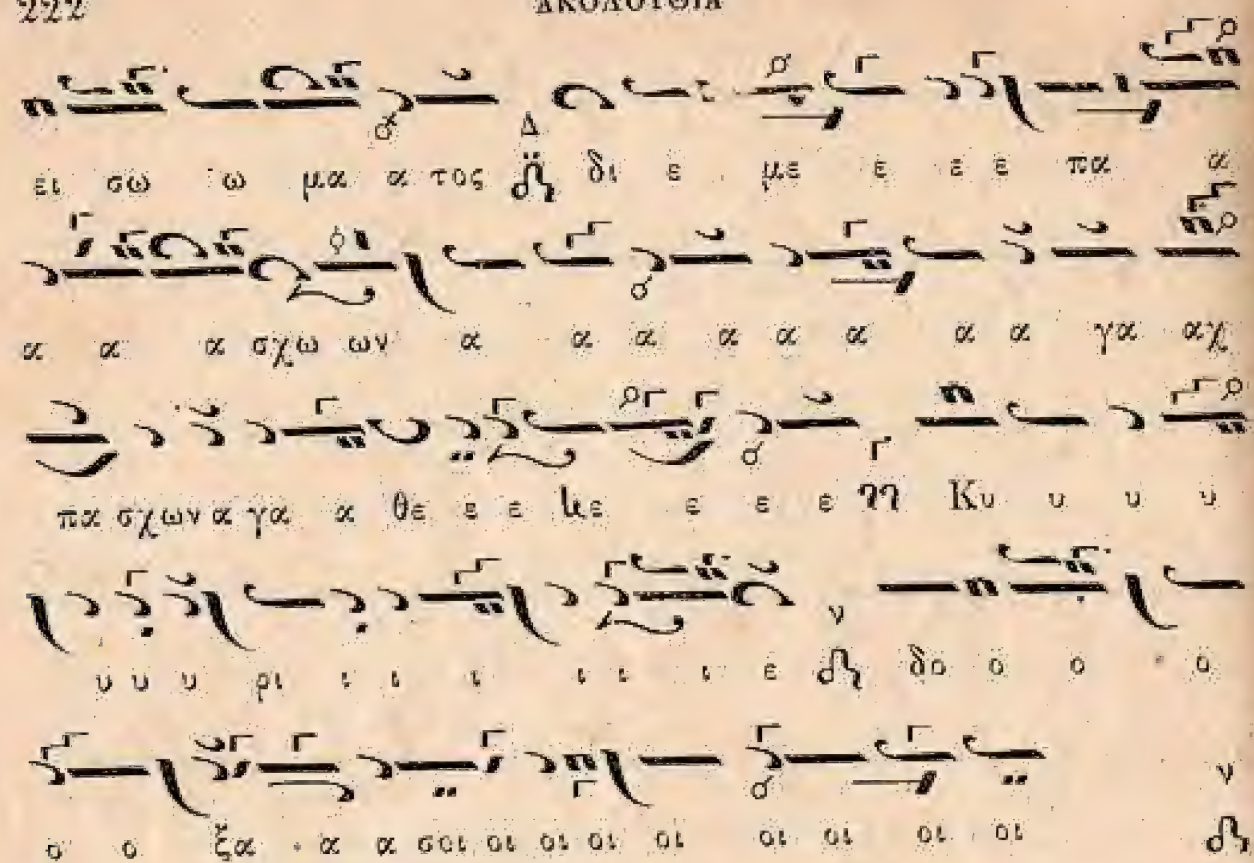 222 ΑΚΟΛΟΥΘΙΑ
ει σω ω μα α τος Δ δι ε με ε ε ε πα α
α α α σχω ων α α α α α α α α γα αχ
πα σχων α γα α θε ε ε κε ε ε ε Κυ υ υ υ
υ υ υ ρι ι ι ι ι ι ι ε ν δο ο ο ο
ο ο ξα α α σοι οι οι οι οι οι οι οι οι ν